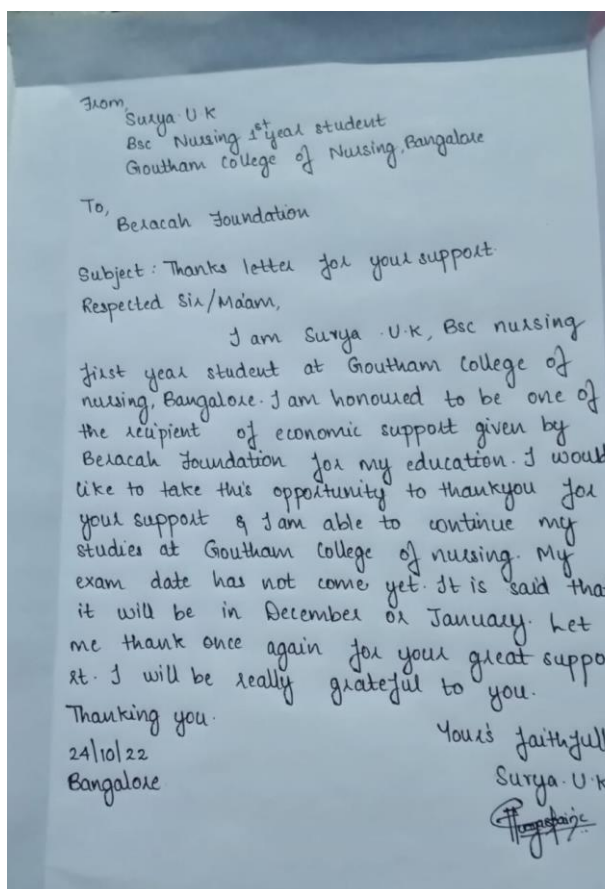 From,
Surya U.K
Bsc Nursing 1st year student
Goutham College of Nursing, Bangalore
To,
Beracah Foundation
Subject : Thanks letter for your support.
Respected Sir/Ma'am,
I am Surya .U.K, Bsc nursing
first year student at Goutham College of
nursing, Bangalore. I am honoured to be one of
the recipient of economic support given by
Beracah Foundation for my education. I would
like to take this opportunity to thankyou for
your support & I am able to continue my
studies at Goutham College of nursing. My
exam date has not come yet. It is said tha
it will be in December or January. Let
me thank once again for your great suppo
rt. I will be really grateful to you.
Thanking you.
Your's faithfull
24/10/22
Bangalore
Surya. U.K